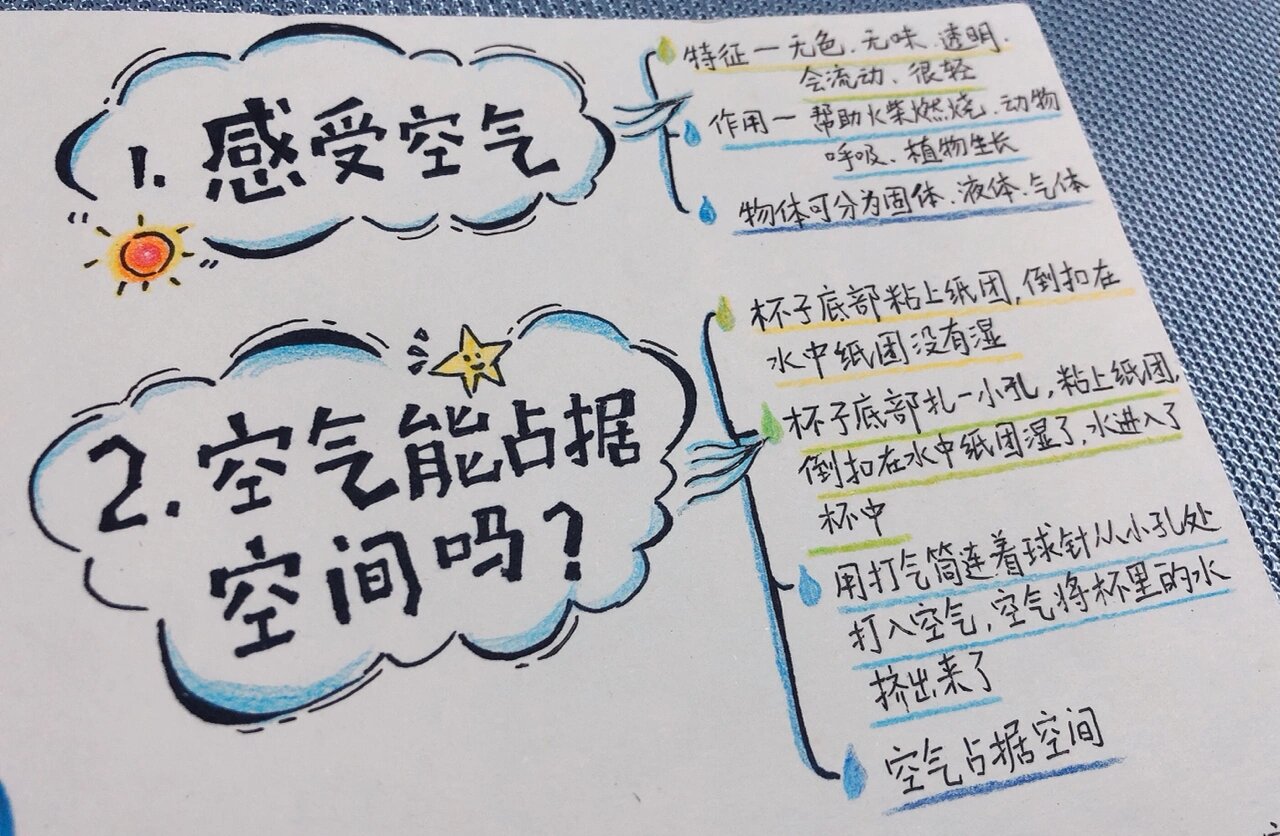 1. 感受空气
特征—无色、无味、透明、
会流动、很轻
作用—帮助火柴燃烧、动物
呼吸、植物生长
物体可分为固体、液体、气体
2. 空气能占据
空间吗?
杯子底部粘上纸团,倒扣在
水中纸团没有湿
杯子底部扎一小孔,粘上纸团,
倒扣在水中纸团湿了,水进入了
杯中
用打气筒连着球针从小孔处
打入空气,空气将杯里的水
挤出来了
空气占据空间